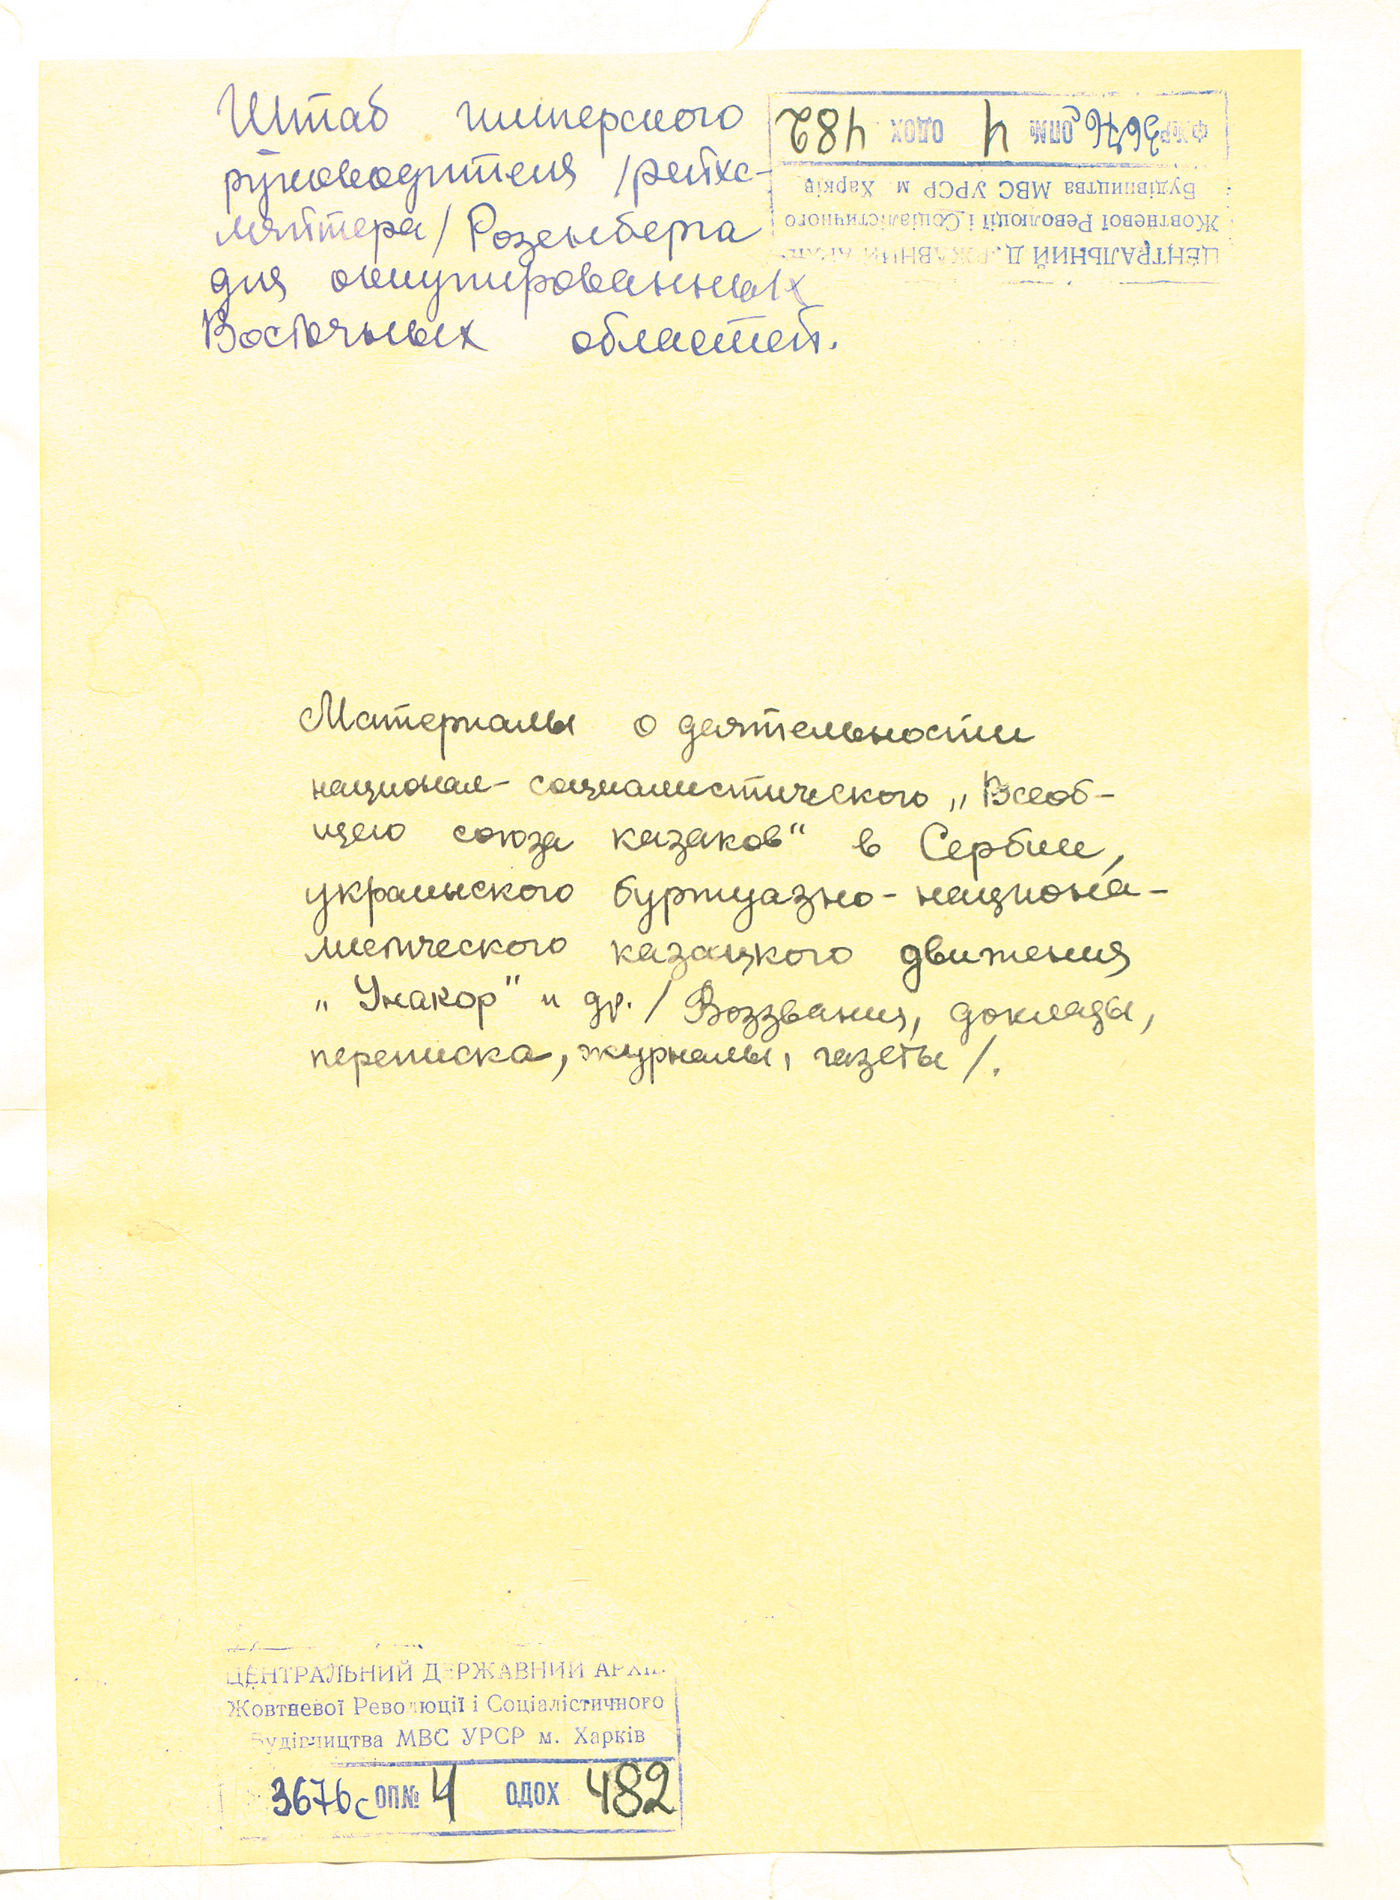 Штаб имперского
руководителя /рейхс-
ляйтера/ Розенберга
для оккупированных
Восточных областей.
ЦЕНТРАЛЬНИЙ ДЕРЖАВНИЙ
Жовтневої Революції і Соціалістичного
Будівництва МВС УРСР м. Харків
Ф №Р 3676с ОП№ 4 ОДОХ 482
Материалы о деятельности
национал-социалистического „Всеоб-
щего союза казаков“ в Сербии,
украинского буржуазно-национа-
листического казацкого движения
„Унакор“ и др. /Воззвания, доклады,
переписка, журналы, газеты/.
ЦЕНТРАЛЬНИЙ ДЕРЖАВНИЙ АРХІВ
Жовтневої Революції і Соціалістичного
Будівництва МВС УРСР м. Харків
3676с ОП№ 4 ОДОХ 482